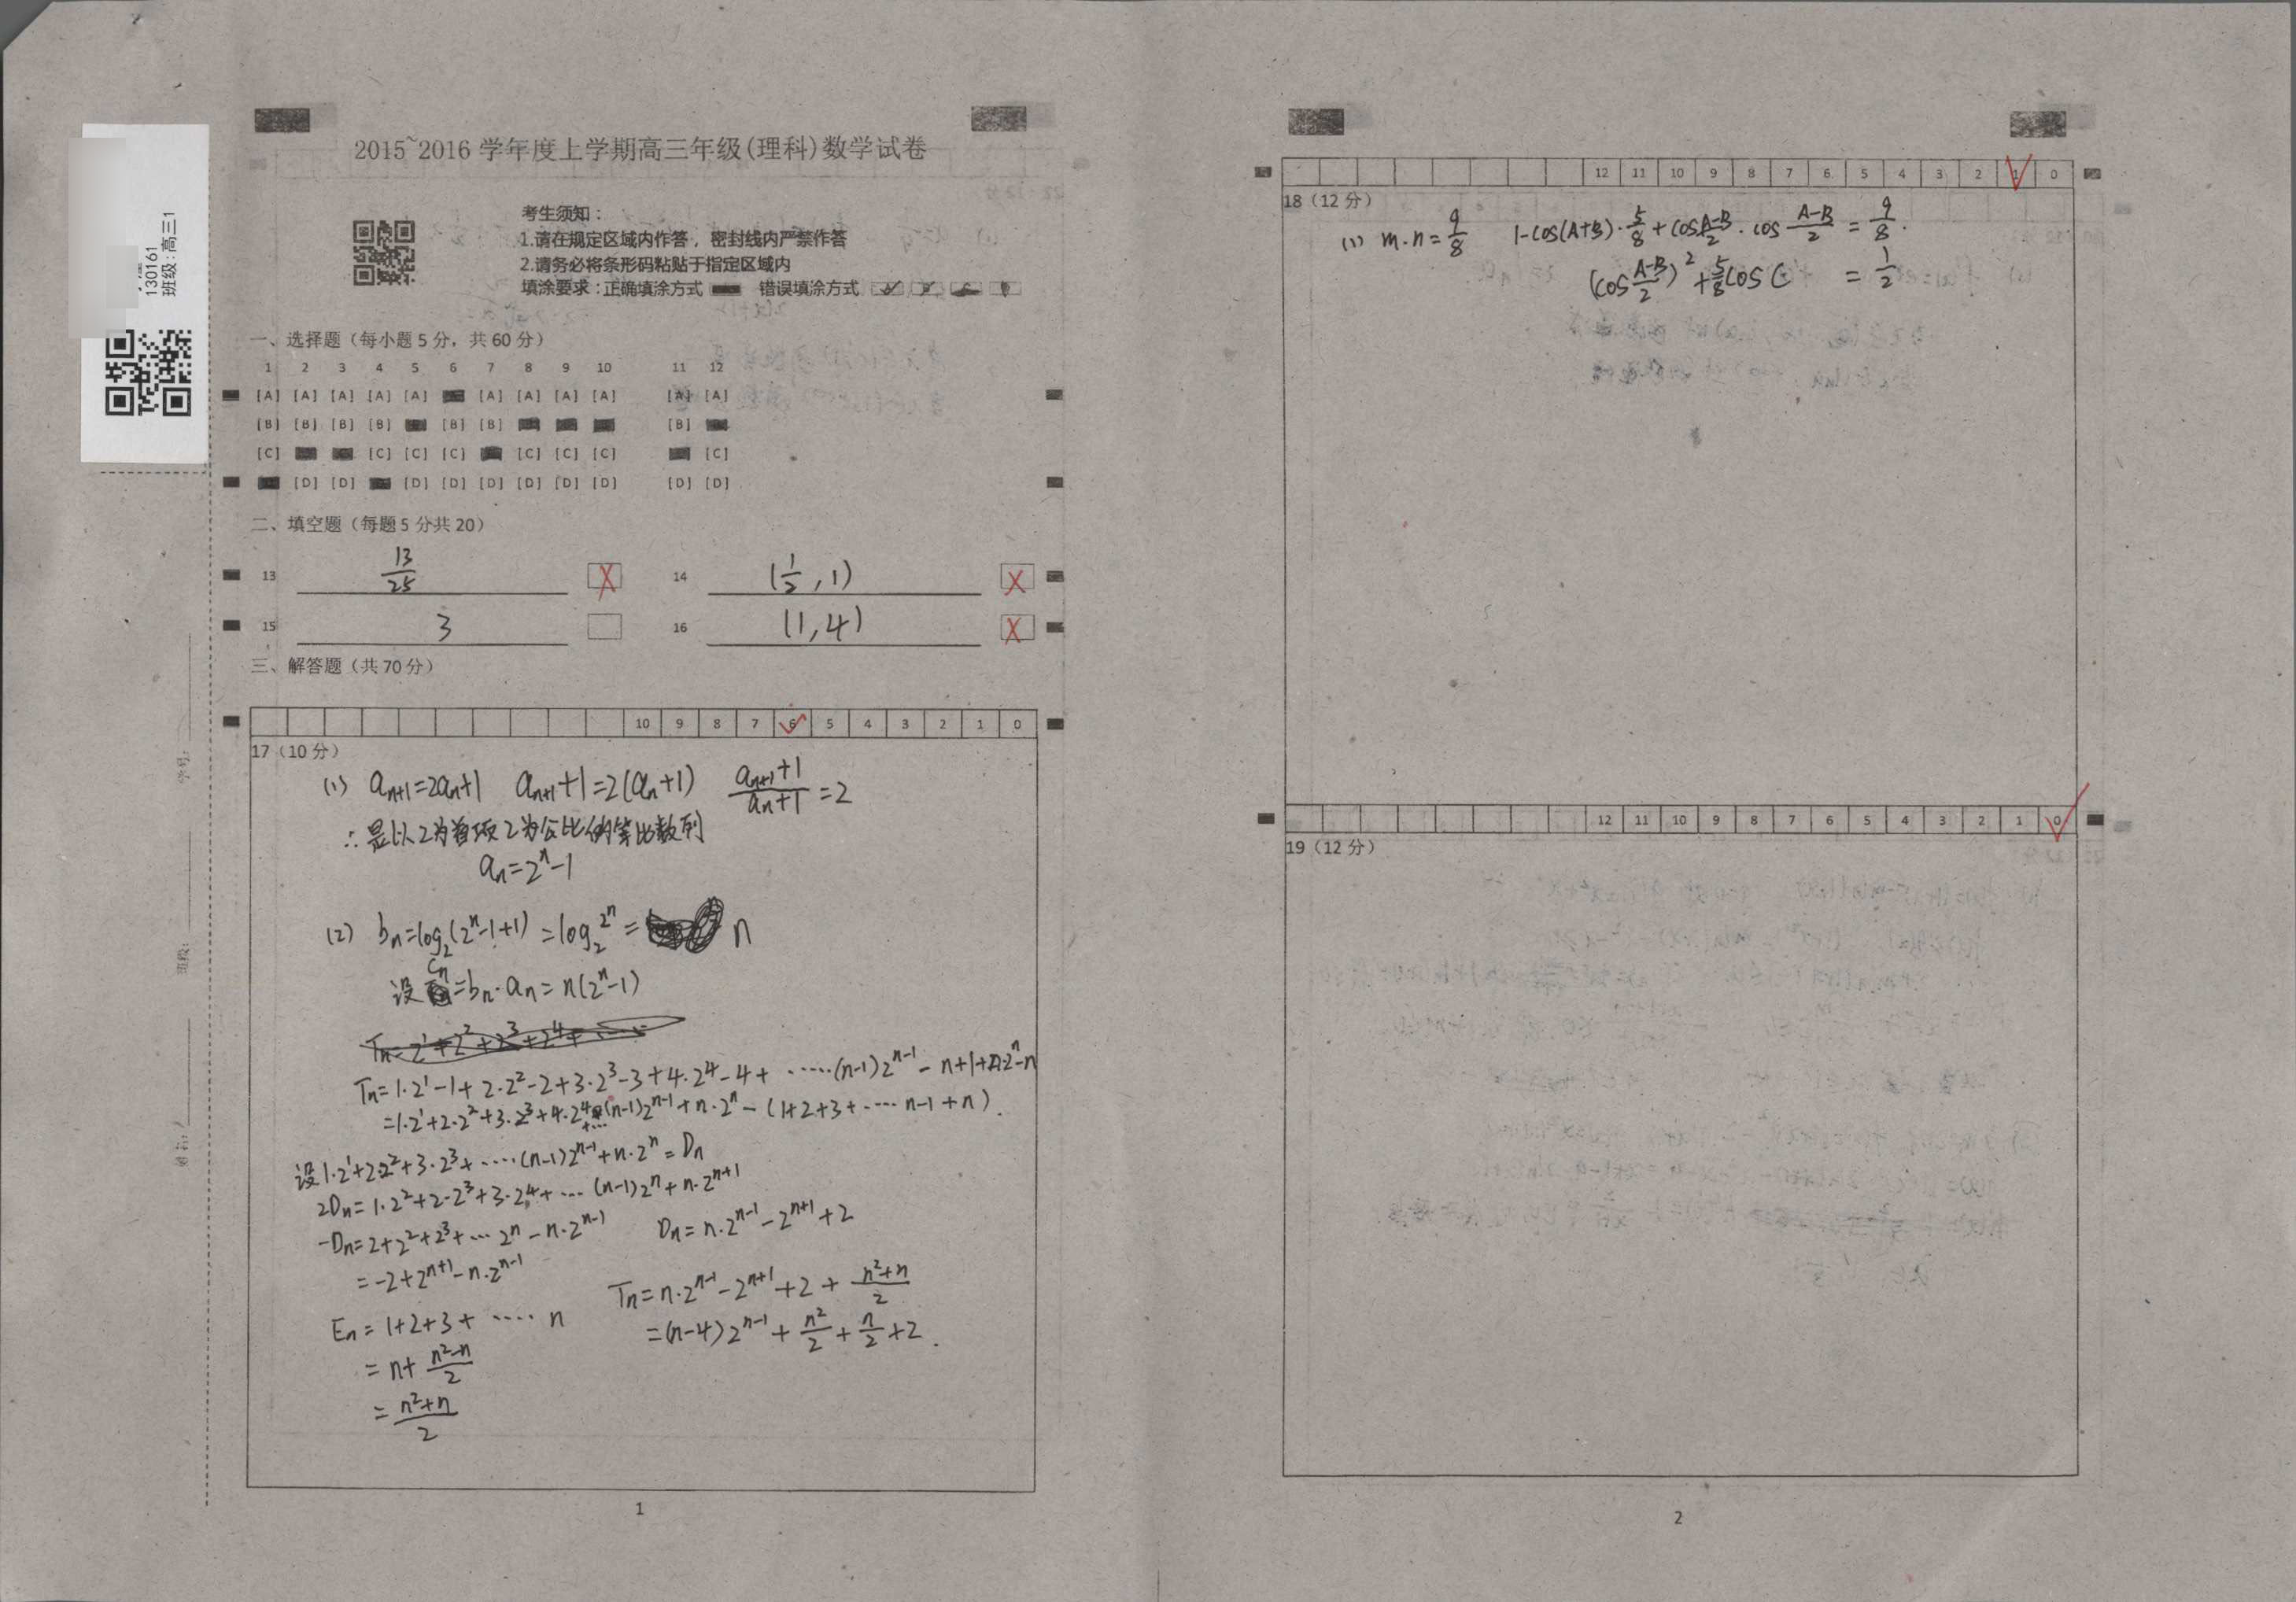 130161
班级：高三1
学号：
班级：
姓名：
2015~2016 学年度上学期高三年级(理科)数学试卷
考生须知：
1.请在规定区域内作答，密封线内严禁作答
2.请务必将条形码粘贴于指定区域内
填涂要求：正确填涂方式 错误填涂方式
一、选择题（每小题 5 分，共 60 分）
1 2 3 4 5 6 7 8 9 10 11 12
[A] [A] [A] [A] [A] [A] [A] [A] [A] [A] [A]
[B] [B] [B] [B] [B] [B] [B]
[C] [C] [C] [C] [C] [C] [C] [C]
[D] [D] [D] [D] [D] [D] [D] [D] [D] [D]
二、填空题（每题 5 分共 20）
13 13/25 14 (1/2, 1)
15 3 16 (1, 4)
三、解答题（共 70 分）
10 9 8 7 6 5 4 3 2 1 0
17（10 分）
(1) aₙ₊₁=2aₙ+1 aₙ₊₁+1=2(aₙ+1) (aₙ₊₁+1)/(aₙ+1)=2
∴是以2为首项2为公比的等比数列
aₙ=2ⁿ-1
(2) bₙ=log₂(2ⁿ-1+1)=log₂2ⁿ= n
设Cₙ=bₙ·aₙ=n(2ⁿ-1)
Tₙ=2¹+2²+2³+2⁴+……
Tₙ=1·2¹-1+2·2²-2+3·2³-3+4·2⁴-4+ ……(n-1)2ⁿ⁻¹-n+1+n·2ⁿ-n
=1·2¹+2·2²+3·2³+4·2⁴+…(n-1)2ⁿ⁻¹+n·2ⁿ-(1+2+3+……n-1+n).
设1·2¹+2·2²+3·2³+……(n-1)2ⁿ⁻¹+n·2ⁿ=Dₙ
2Dₙ=1·2²+2·2³+3·2⁴+…(n-1)2ⁿ+n·2ⁿ⁺¹
-Dₙ=2+2²+2³+…2ⁿ-n·2ⁿ⁻¹ Dₙ=n·2ⁿ⁻¹-2ⁿ⁺¹+2
=-2+2ⁿ⁺¹-n·2ⁿ⁻¹
Tₙ=n·2ⁿ⁻¹-2ⁿ⁺¹+2+(n²+n)/2
=(n-4)2ⁿ⁻¹+n²/2+n/2+2.
Eₙ=1+2+3+……n
=n+(n²-n)/2
=(n²+n)/2
1
12 11 10 9 8 7 6 5 4 3 2 1 0
18（12 分）
(1) m·n=9/8 1-cos(A+B)·5/8+cos(A-B)/2·cos(A-B)/2=9/8.
(cos(A-B)/2)²+5/8cosC =1/2
12 11 10 9 8 7 6 5 4 3 2 1 0
19（12 分）
2